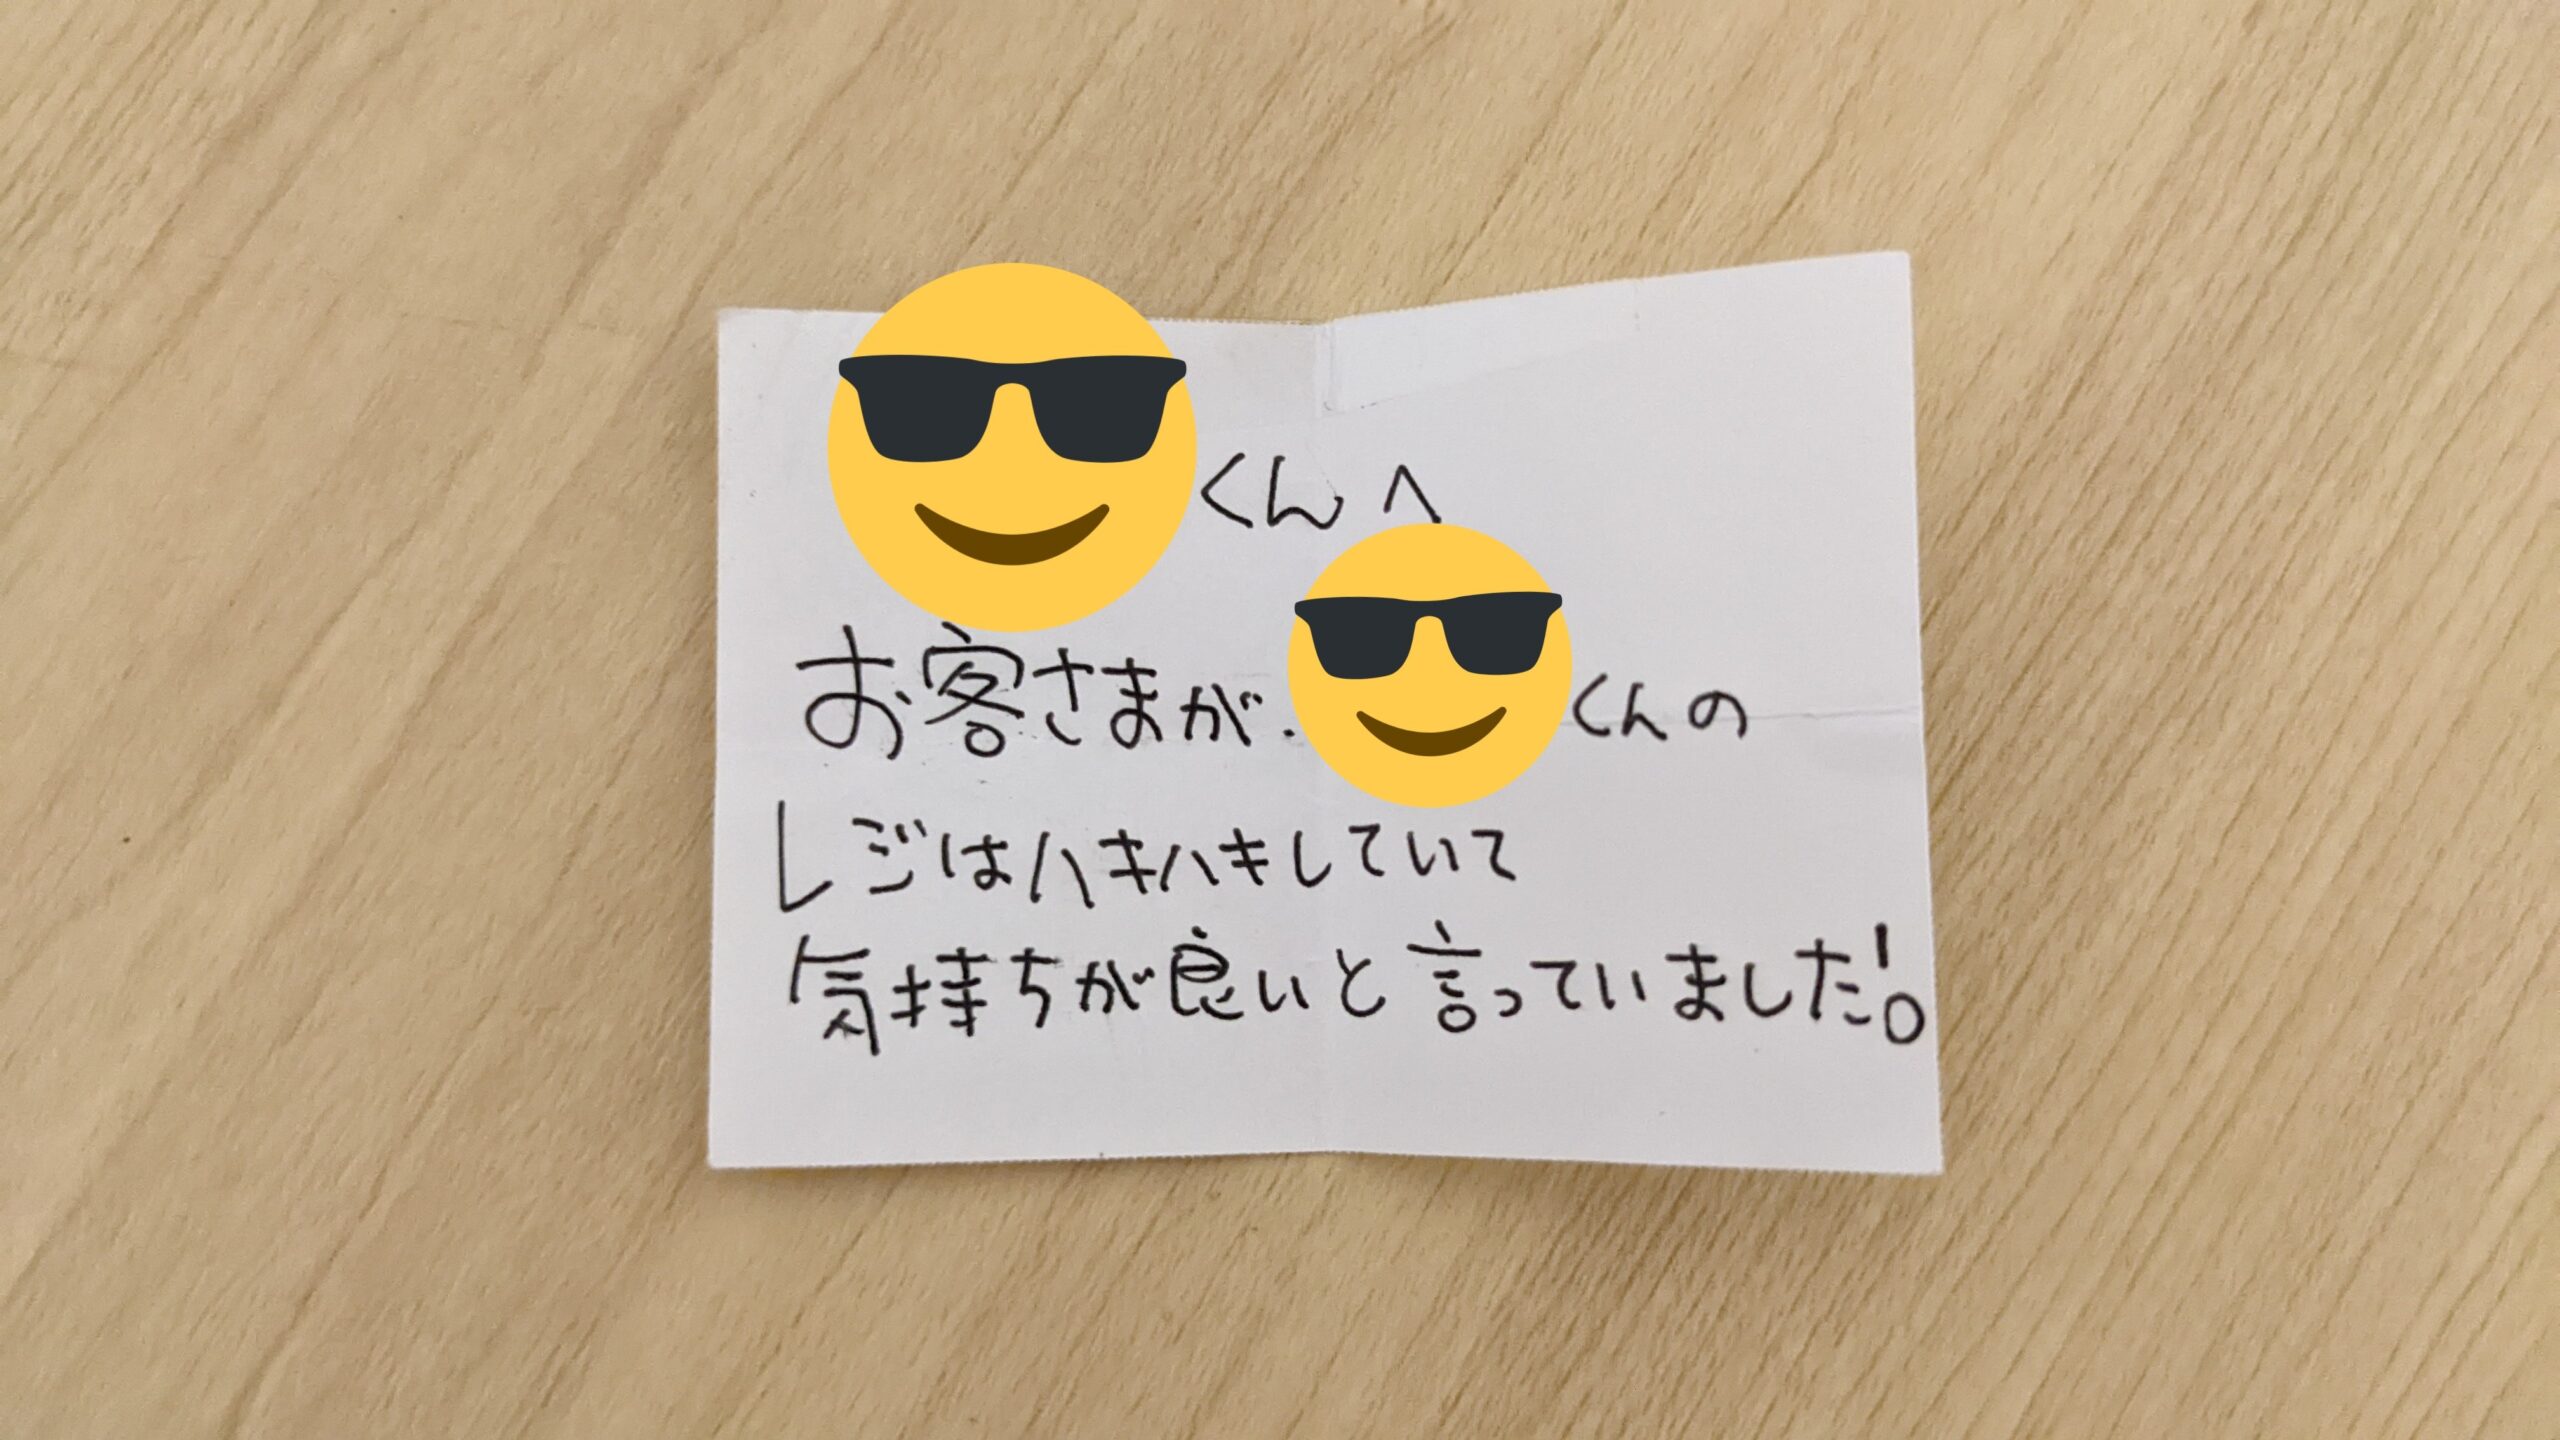 くんへ
お客さまが、くんの
レジはハキハキしていて
気持ちが良いと言っていました!